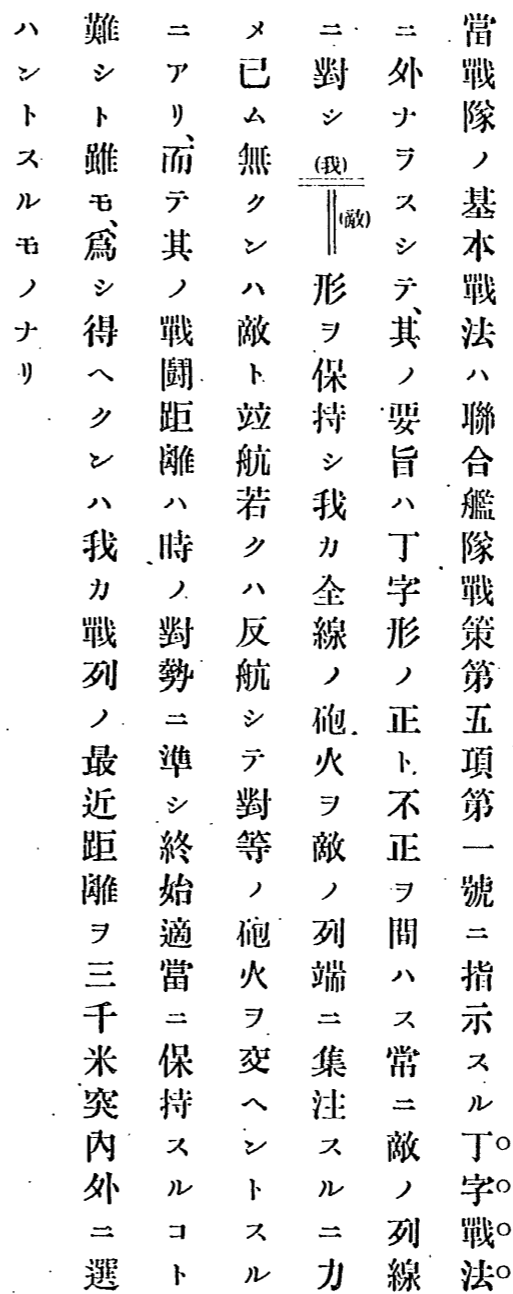 當戰隊ノ基本戰法ハ聯合艦隊戰策第五項第一號ニ指示スル丁字戰法
ニ外ナラスシテ、其ノ要旨ハ丁字形ノ正ト不正ヲ問ハス常ニ敵ノ列線
ニ對シ(我)(敵)形ヲ保持シ我カ全線ノ砲火ヲ敵ノ列端ニ集注スルニ力
メ已ム無クンハ敵ト竝航若クハ反航シテ對等ノ砲火ヲ交ヘントスル
ニアリ、而テ其ノ戰鬪距離ハ時ノ對勢ニ準シ終始適當ニ保持スルコト
難シト雖モ、爲シ得ヘクンハ我カ戰列ノ最近距離ヲ三千米突內外ニ選
ハントスルモノナリ